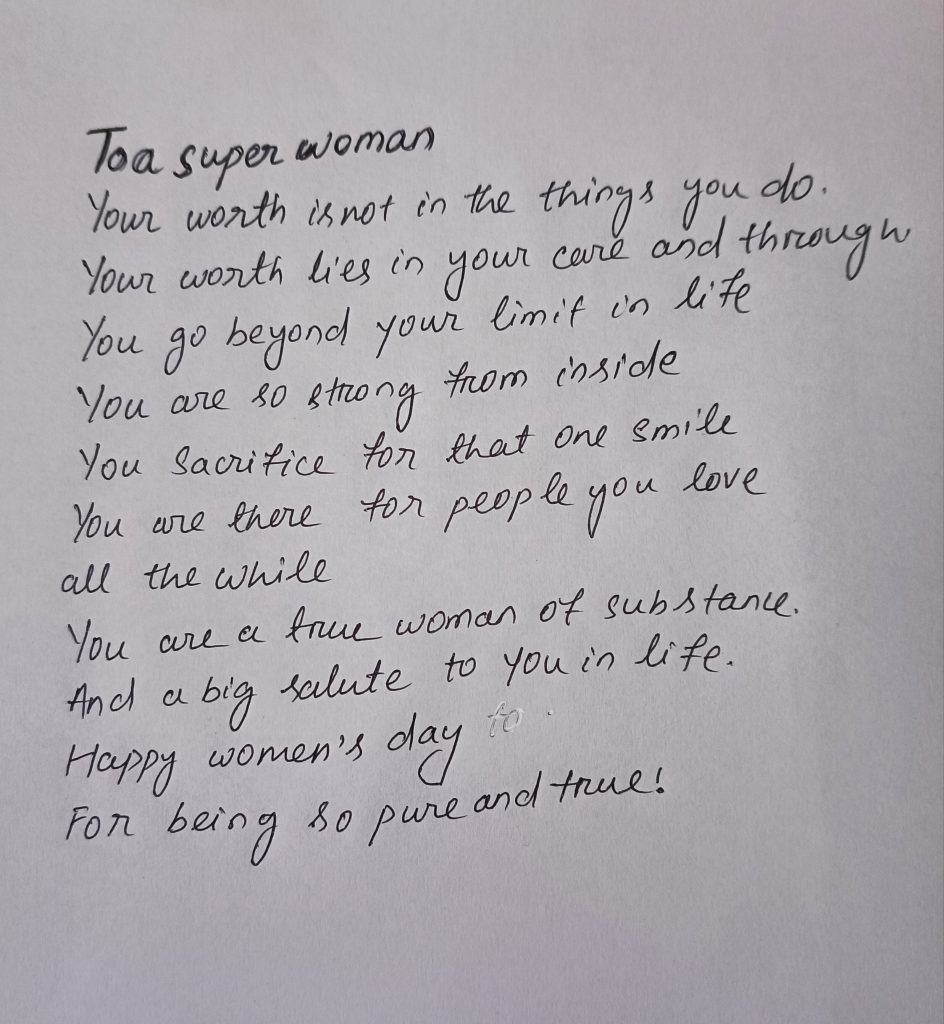 To a super woman
Your worth is not in the things you do.
Your worth lies in your care and through
You go beyond your limit in life
You are so strong from inside
You sacrifice for that one smile
You are there for people you love
all the while
You are a true woman of substance.
And a big salute to you in life.
Happy women's day to
For being so pure and true!